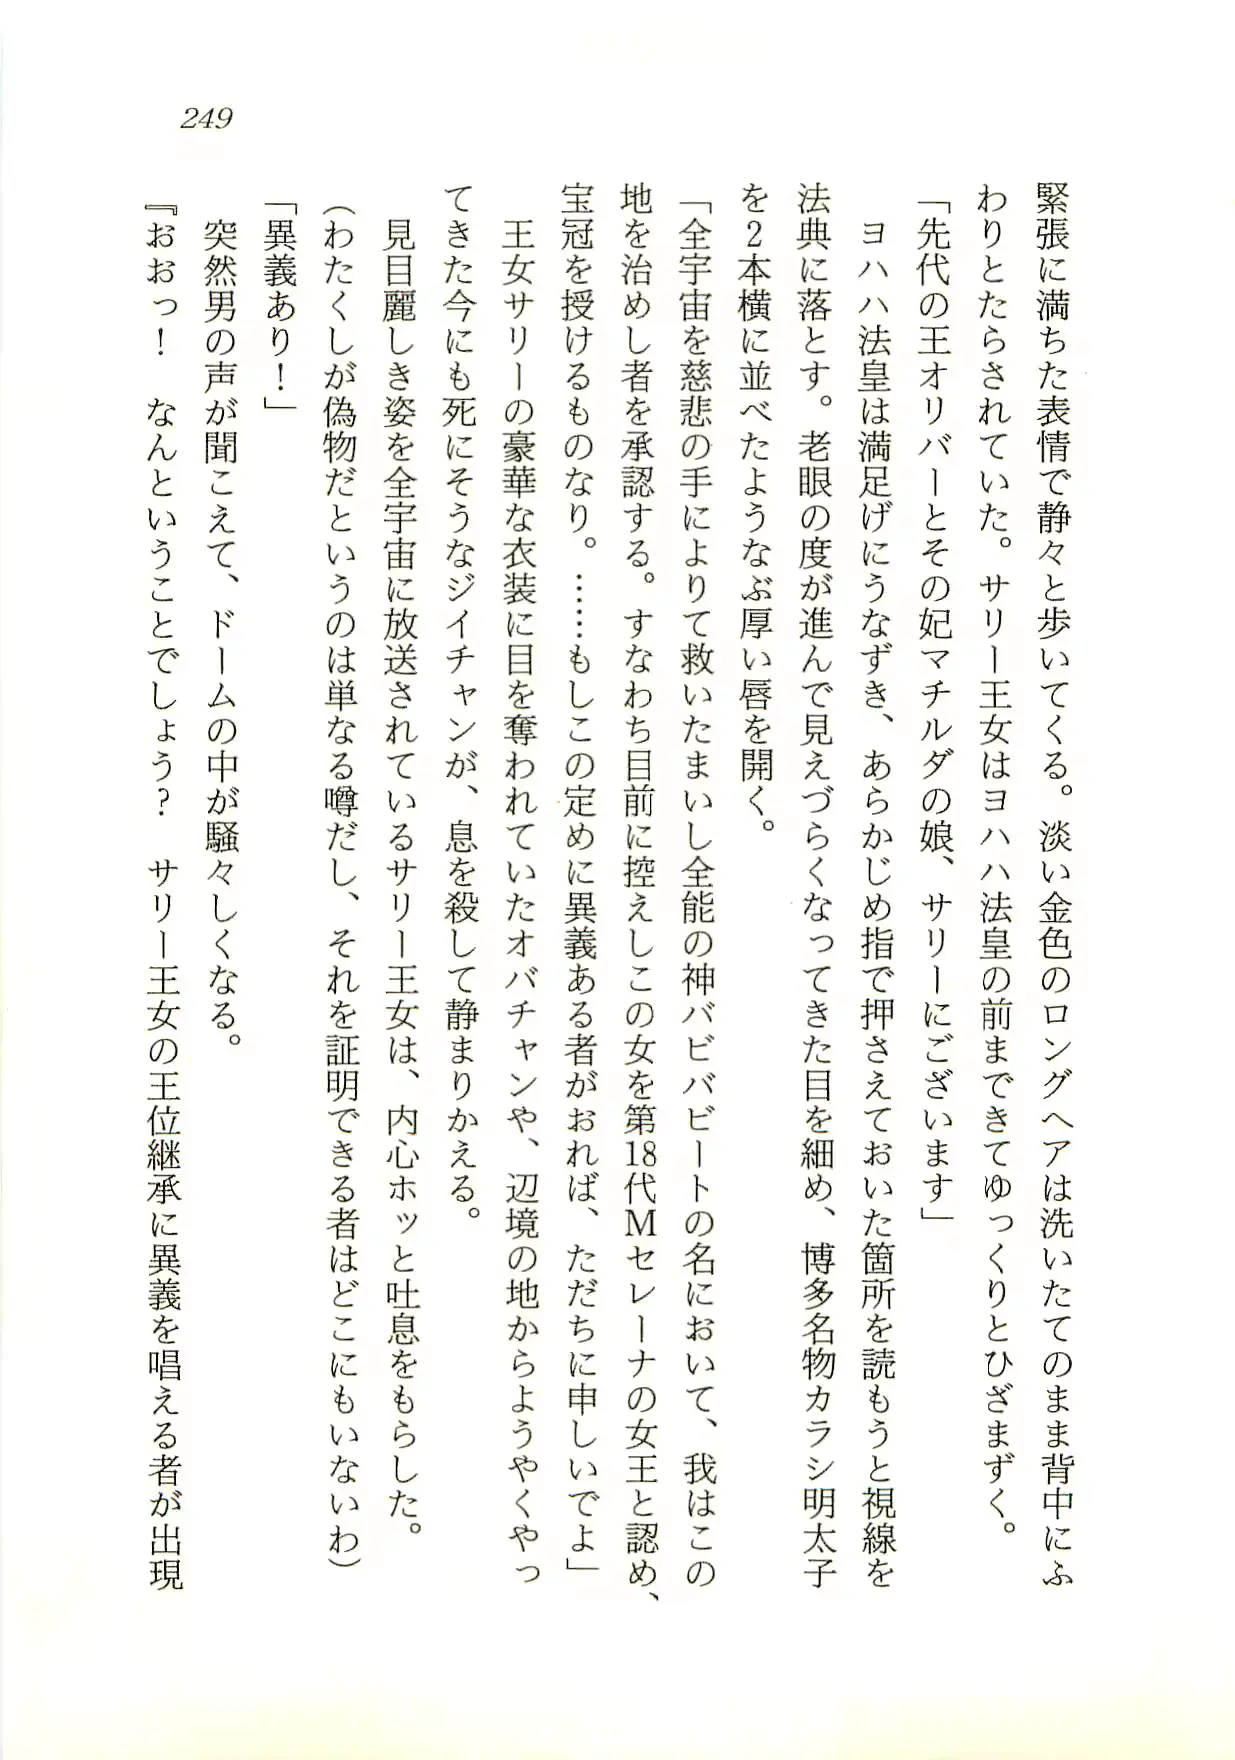 249
緊張に満ちた表情で静々と歩いてくる。淡い金色のロングヘアは洗いたてのまま背中にふ
わりとたらされていた。サリー王女はヨハハ法皇の前まできてゆっくりとひざまずく。
「先代の王オリバーとその妃マチルダの娘、サリーにございます」
ヨハハ法皇は満足げにうなずき、あらかじめ指で押さえておいた箇所を読もうと視線を
法典に落とす。老眼の度が進んで見えづらくなってきた目を細め、博多名物カラシ明太子
を2本横に並べたようなぶ厚い唇を開く。
「全宇宙を慈悲の手によりて救いたまいし全能の神バビバビートの名において、我はこの
地を治めし者を承認する。すなわち目前に控えしこの女を第18代Mセレーナの女王と認め、
宝冠を授けるものなり。……もしこの定めに異義ある者がおれば、ただちに申しいでよ」
王女サリーの豪華な衣装に目を奪われていたオバチャンや、辺境の地からようやくやっ
てきた今にも死にそうなジイチャンが、息を殺して静まりかえる。
見目麗しき姿を全宇宙に放送されているサリー王女は、内心ホッと吐息をもらした。
(わたくしが偽物だというのは単なる噂だし、それを証明できる者はどこにもいないわ)
「異義あり!」
突然男の声が聞こえて、ドームの中が騒々しくなる。
『おおっ! なんということでしょう? サリー王女の王位継承に異義を唱える者が出現